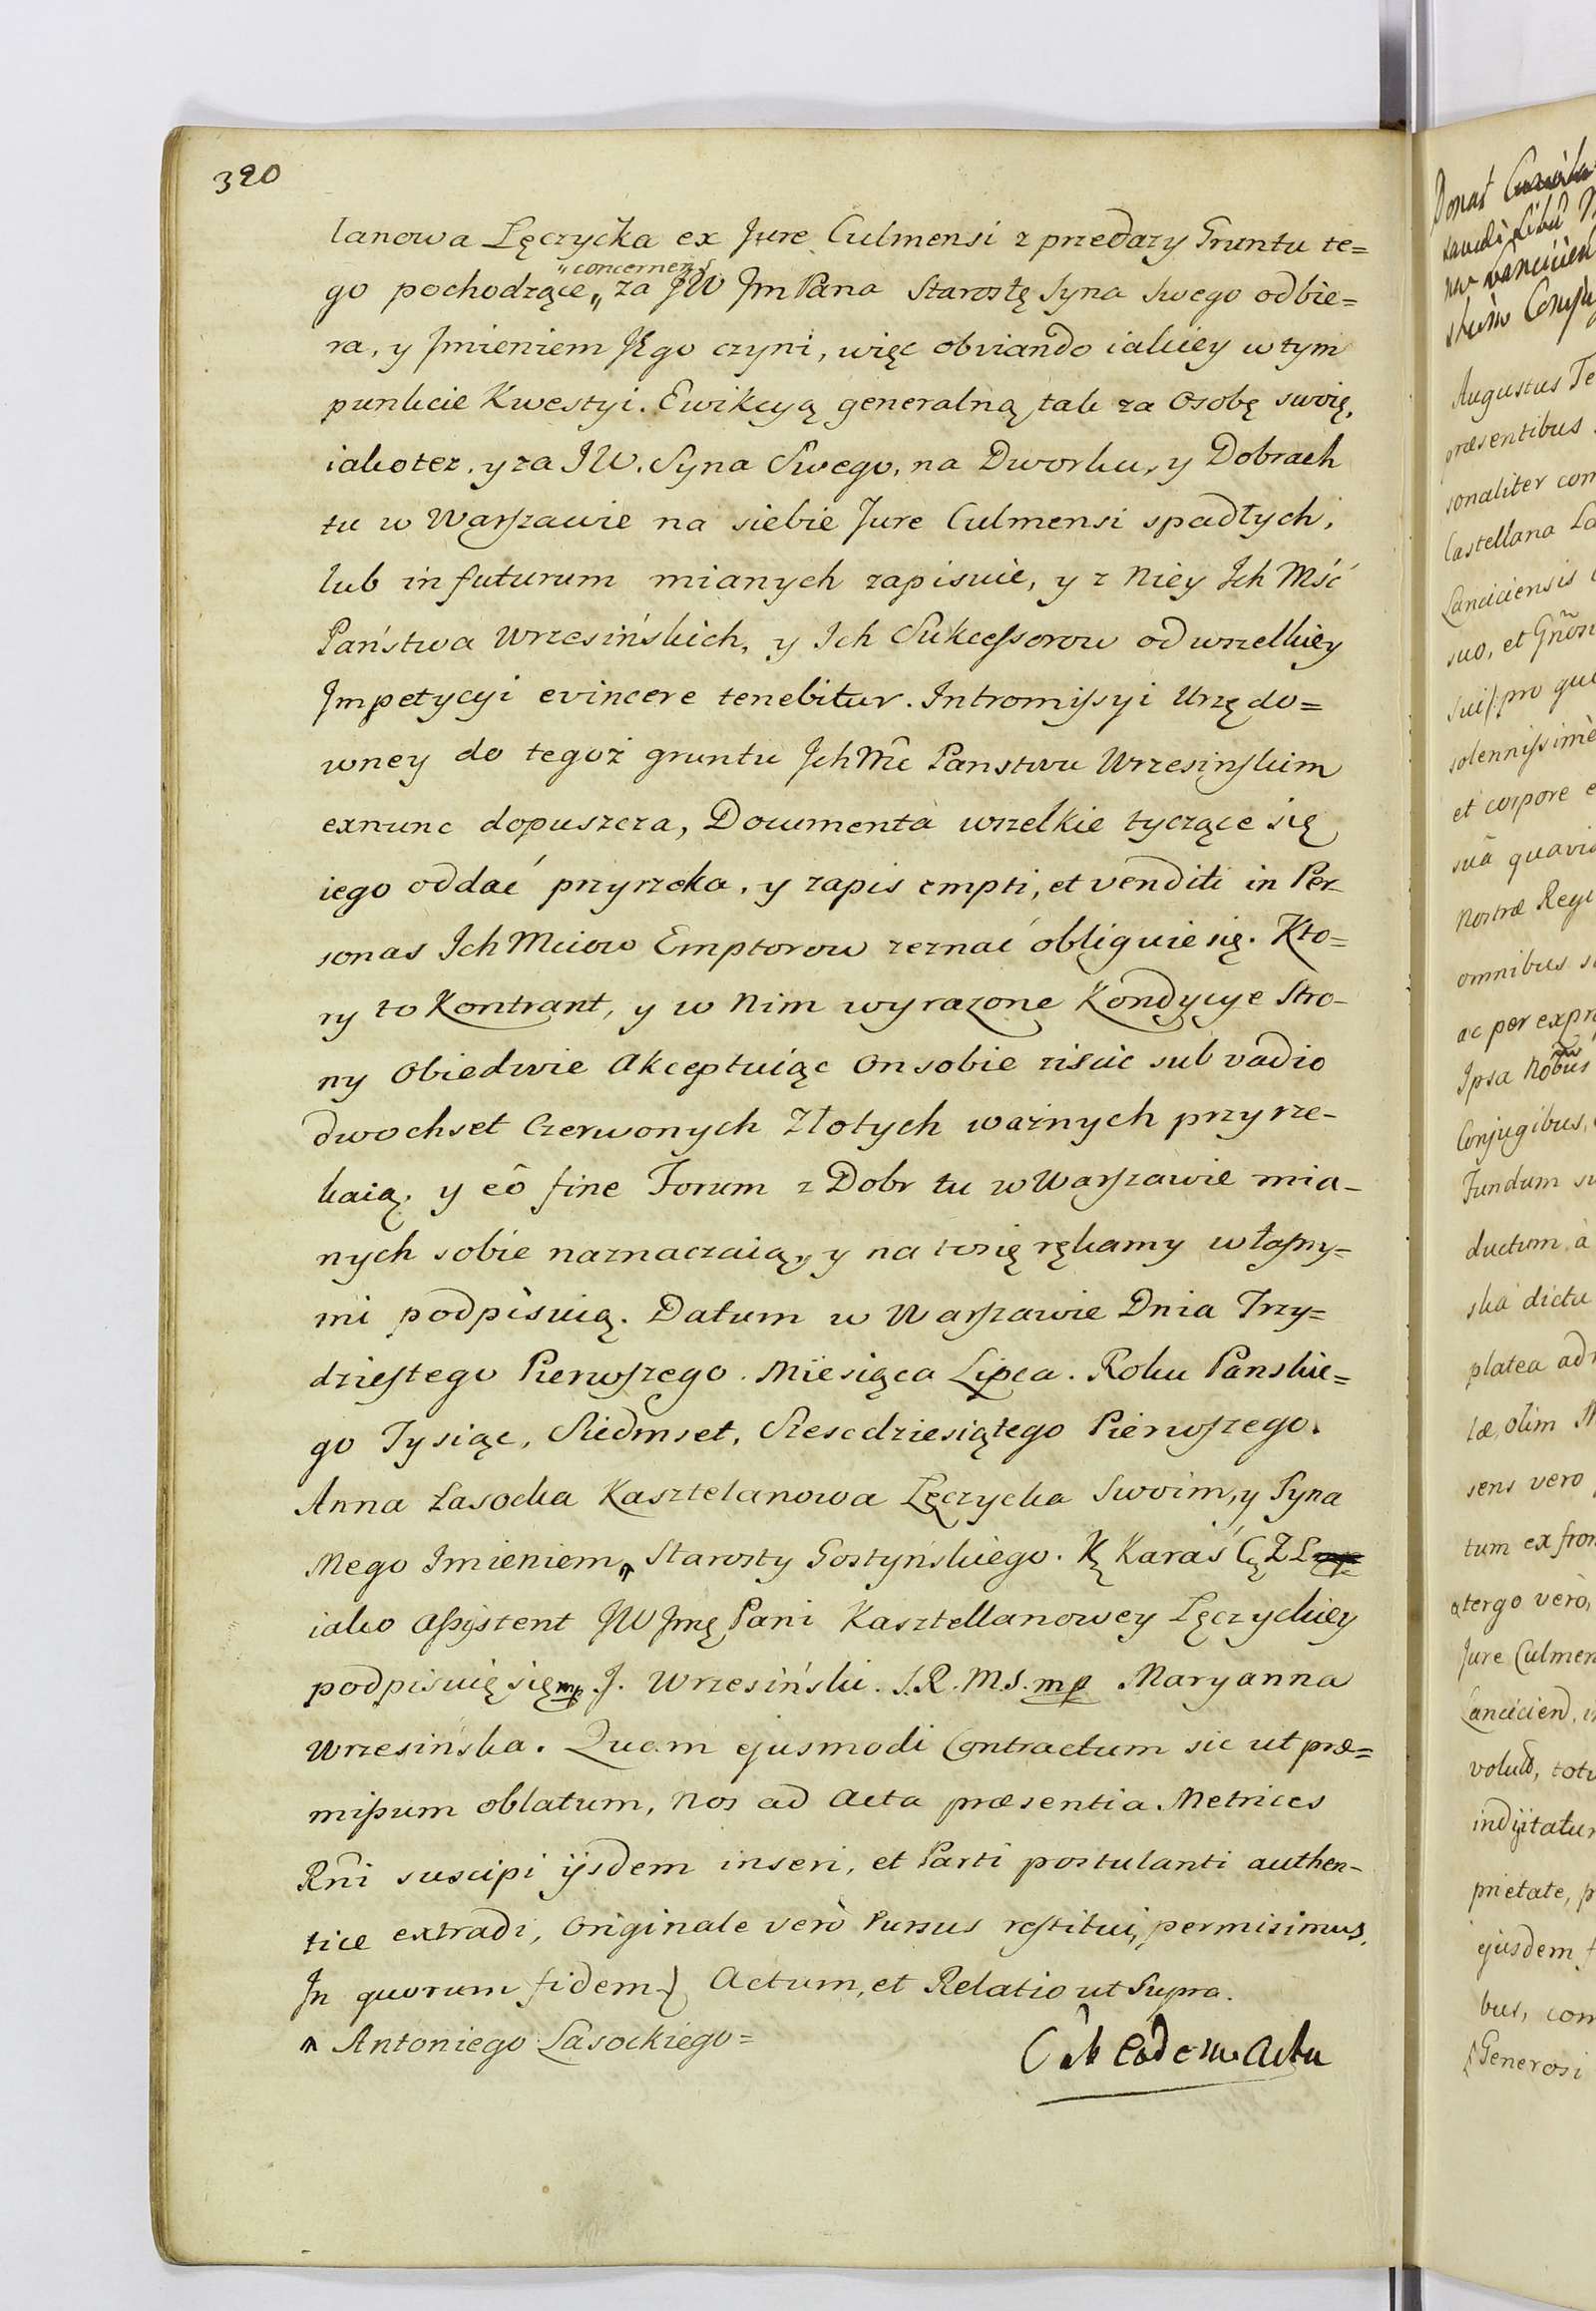 320
lanowa Lęczycka ex Jure Culmensi z przedazy Gruntu te=
„concernens
go pochodzące„ za JW JmPana Starostę Syna Swego odbie=
ra, y Jmieniem JEgo czyni, więc obviando iakiey w tym
punkcie Kwestyi. Ewikcyą generalną tak za Osobę swoię,
iako tez, y za JW. Syna Swego, na Dworku, y Dobrach
tu w Warszawie na siebie Jure Culmensi spadłych,
lub in futurum mianych zapisuie, y z Niey Ich Mść
Państwa Wrzesińskich, y Ich Sukcessorow od wszelkiey
Jmpetycyi evincere tenebitur. Intromissyi Urzędo=
wney do tegoż gruntu JchMć Panstwu Wrzesinskim
exnunc dopuszcza, Documenta wszelkie tyczące się
iego oddać przyrzeka, y zapis empti, et venditi in Per
sonas Ich Mciow Emptorow zeznać obliguie się. Kto=
ry to Kontrant, y w Nim wyrazone Kondycye Stro-
ny Obiedwie Akceptuiąc On sobie ziścić sub vadio
dwochset Czerwonych Złotych ważnych przyrze-
kaią, y eô fine Forum z Dobr tu w Warszawie mia-
nych sobie naznaczaią, y na to się rękamy własny=
mi podpisuią. Datum w Warszawie Dnia Trzy=
dziestego Pierwszego. Miesiąca Lipca. Roku Panskie=
go Tysiąc, Siedmset, Szescdziesiątego Pierwszego.
Anna Łasocka Kasztelanowa Lęczycka Swoim, y Syna
Mego Imieniem„ Starosty Gostyńskiego. K Karaś C Z L
iako Assystent JW Jmę Pani Kasztellanowey Lęczyckiey
podpisuię się mp. J. Wrzesiński. S.R.M.S. mp Maryanna
Wrzesińska. Quem ejusmodi Contractum sic ut præ=
missum oblatum, Nos ad Acta præsentia Metrices
Rñi suscipi ijsdem inseri, et Parti postulanti authen-
tice extradi, Originale verò rursus restitui, permisimus.
In quorum fidem Actum, et Relatio ut Supra.
Antoniego Lasockiego=
eadem Acta
Augustus
præsentibus
sonaliter com
Castellana La
Lanciciensis
suo, et Gnōsi
sui pro qu
solennissimè
et corpore e
suâ quavis
Nostræ Regi
omnibus
ac per expr
Ipsa
Conjugibus,
Fundum su
ductum, a
ska dictu
platea ad
læ, olim
sens vero
tum ex fron
a tergo verò,
Jure Culmen
Lanciciend,
totu
indijtatur
prietate, p
ejusdem
bus, com
Generosi